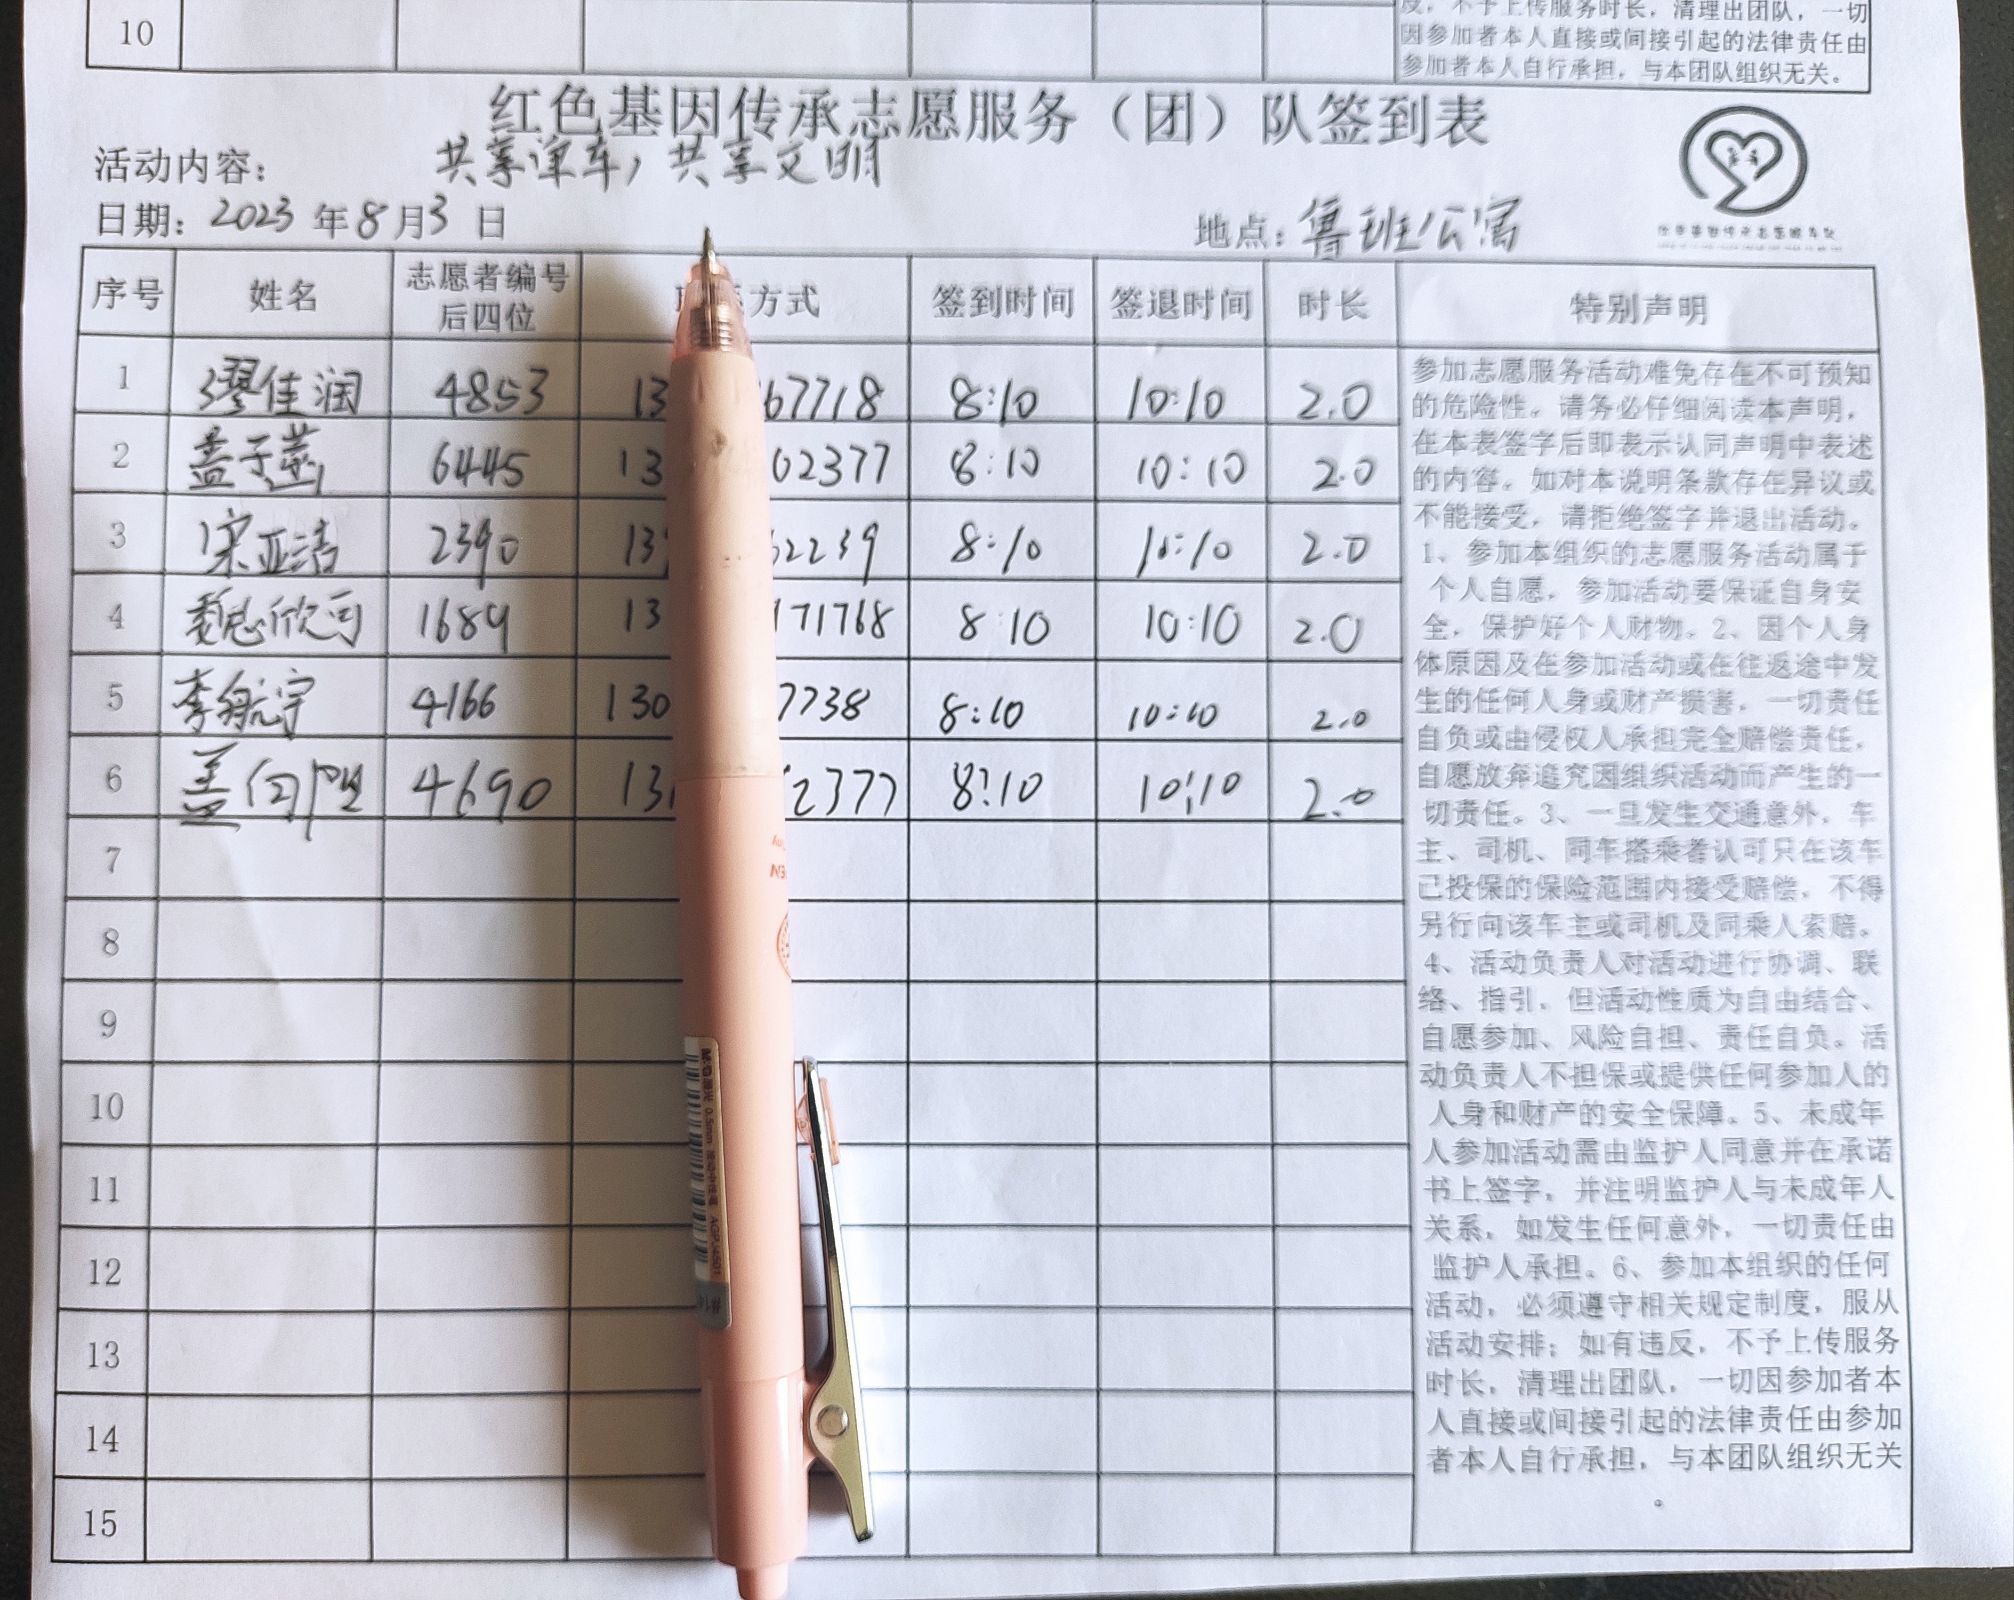 反，不予上传服务时长，清理出团队，一切
10
因参加者本人直接或间接引起的法律责任由
参加者本人自行承担，与本团队组织无关。
红色基因传承志愿服务（团）队签到表
活动内容： 共享单车，共享文明
日期：2023年8月3日 地点：鲁班公寓
序号 姓名 志愿者编号后四位 方式 签到时间 签退时间 时长 特别声明
1 缪佳润 4853 13 67718 8:10 10:10 2.0
2 盖子 6445 13 02377 8:10 10:10 2.0
3 宋亚洁 2390 13 62239 8:10 10:10 2.0
4 魏欣可 1689 13 171768 8:10 10:10 2.0
5 李航宇 4166 130 7738 8:10 10:10 2.0
6 盖 4690 13 2377 8:10 10:10 2.0
7
8
9
10
11
12
13
14
15
参加志愿服务活动难免存在不可预知
的危险性。请务必仔细阅读本声明，
在本表签字后即表示认同声明中表述
的内容。如对本说明条款存在异议或
不能接受，请拒绝签字并退出活动。
1、参加本组织的志愿服务活动属于
个人自愿，参加活动要保证自身安
全，保护好个人财物。2、因个人身
体原因及在参加活动或在往返途中发
生的任何人身或财产损害，一切责任
自负或由侵权人承担完全赔偿责任，
自愿放弃追究因组织活动而产生的一
切责任。3、一旦发生交通意外，车
主、司机、同车搭乘者认可只在该车
已投保的保险范围内接受赔偿，不得
另行向该车主或司机及同乘人索赔。
4、活动负责人对活动进行协调、联
络、指引，但活动性质为自由结合、
自愿参加、风险自担、责任自负。活
动负责人不担保或提供任何参加人的
人身和财产的安全保障。5、未成年
人参加活动需由监护人同意并在承诺
书上签字，并注明监护人与未成年人
关系，如发生任何意外，一切责任由
监护人承担。6、参加本组织的任何
活动，必须遵守相关规定制度，服从
活动安排；如有违反，不予上传服务
时长，清理出团队，一切因参加者本
人直接或间接引起的法律责任由参加
者本人自行承担，与本团队组织无关
。
0.5mm AGP